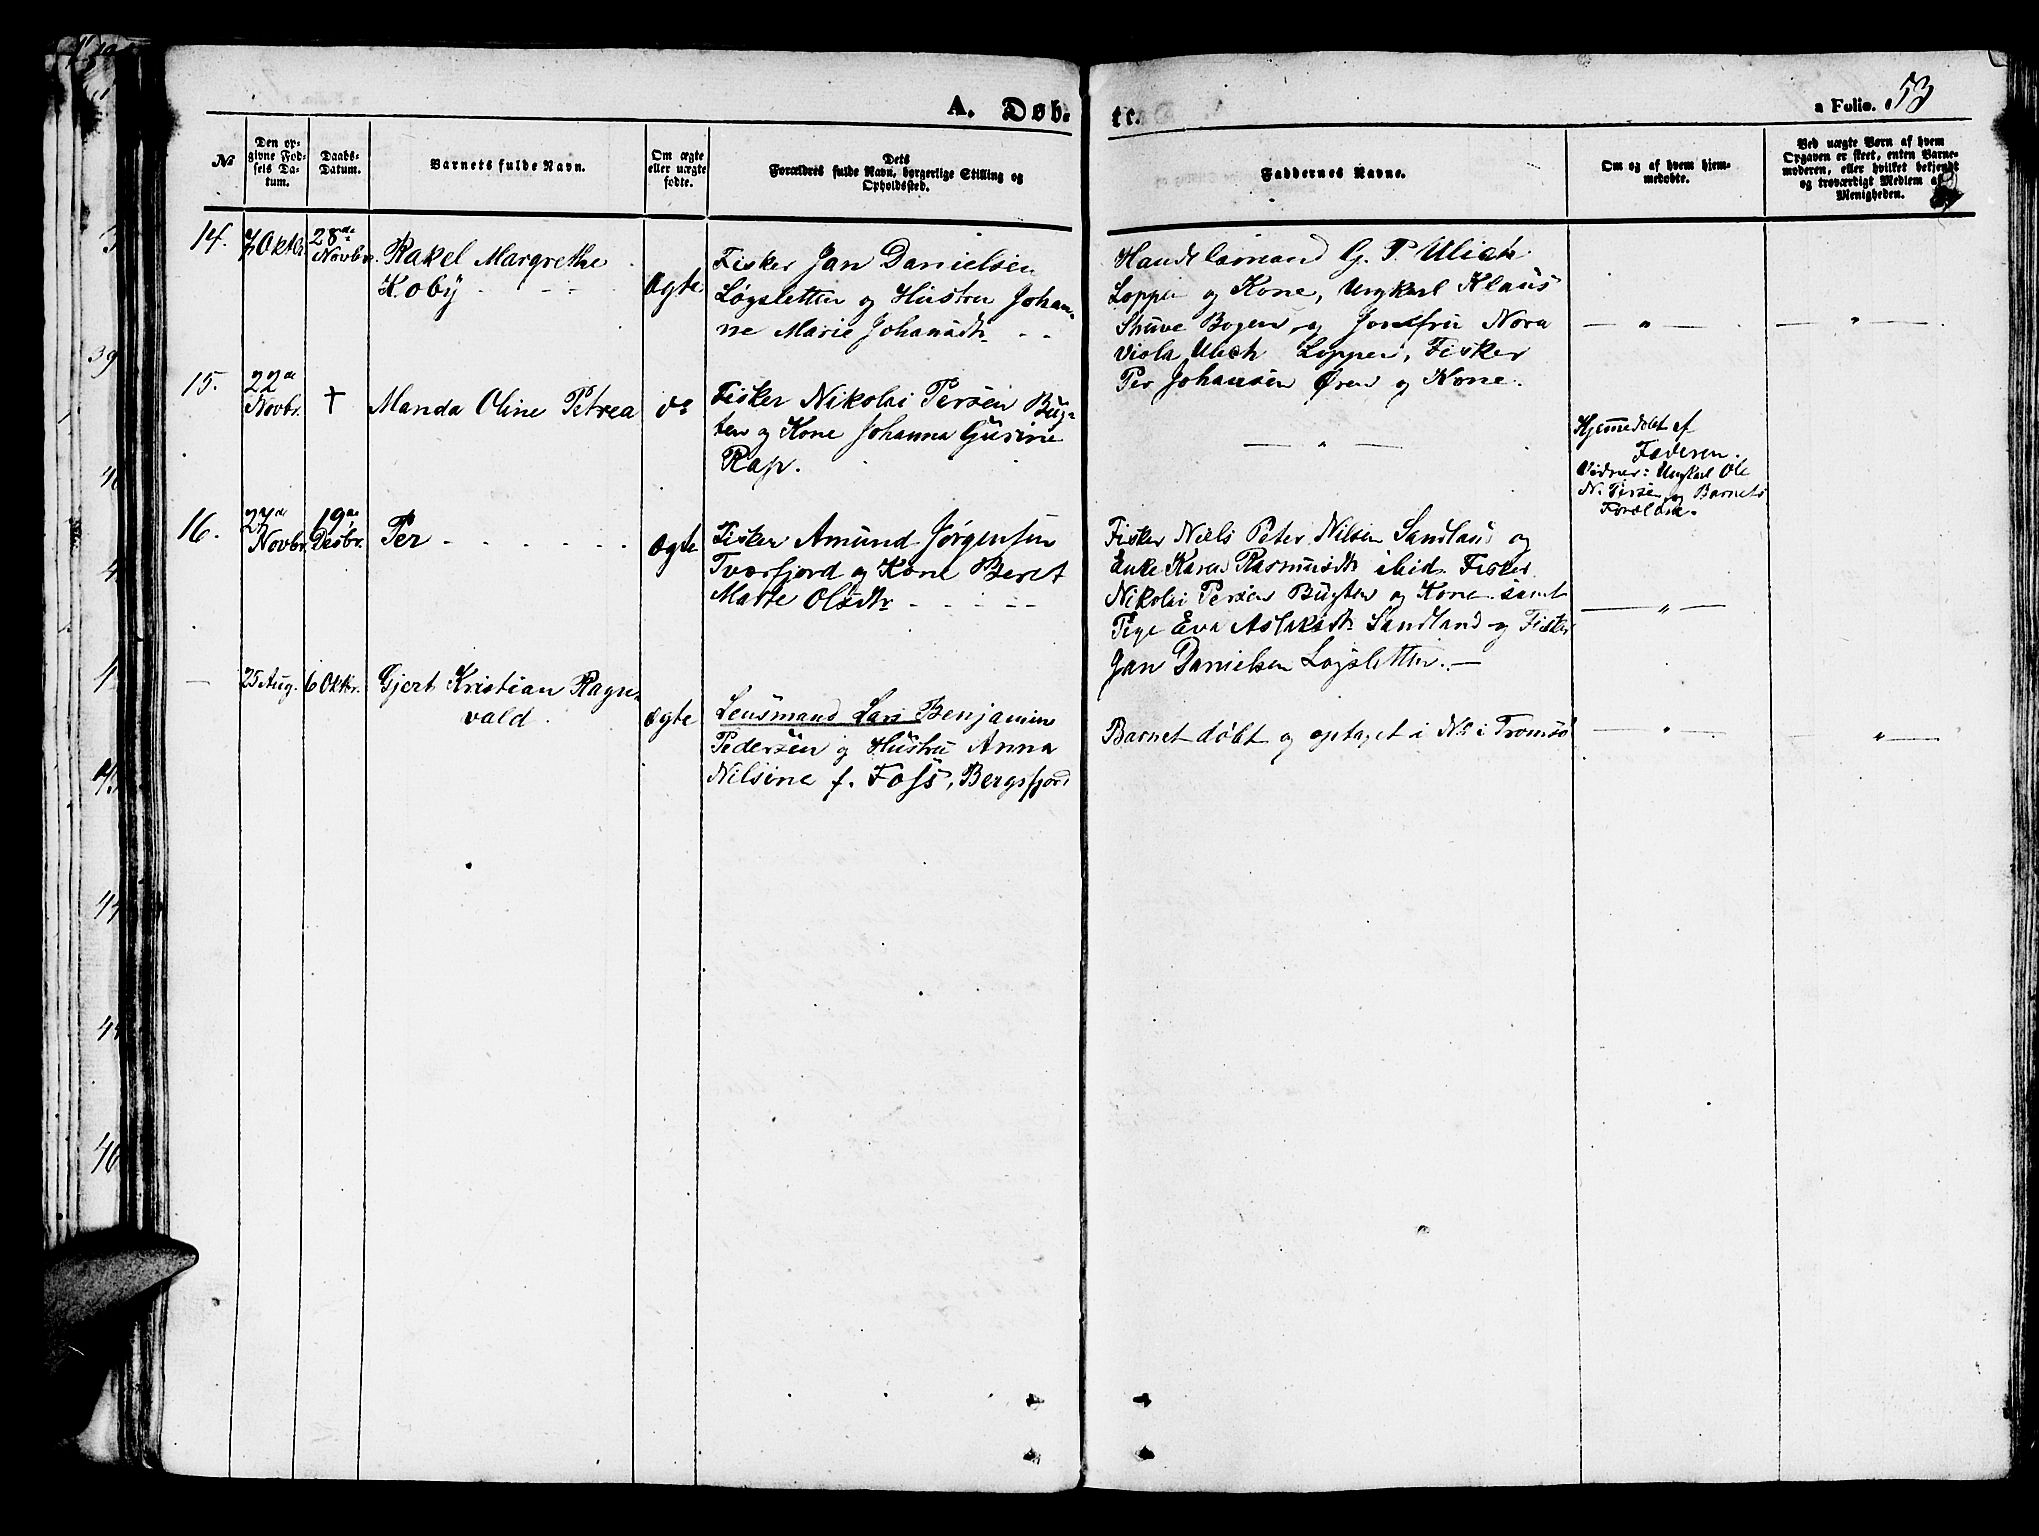 A. Døb-
te.
a Folio.
53
No
Den op-
givne Fød-
sels Da-
tum.
Daabs-
Datum.
Barnets fulde Navn.
Om ægte
eller uægte
fødte.
Dets
Forældres fulde Navn, borgerlige Stilling og
Opholdssted.
Faddernes Navne.
Om og af hvem hjem-
medøbte.
Ved uægte Børn af hvem
Opgaven er skeet, enten Barne-
moderen, eller hvilket bekjendt
og troværdigt Medlem af
Menigheden.
14.
7 Oktbr.
28de
Novbr.
Rakel Margrethe
Koby
Ægte
Fisker Jan Danielsen
Løgsletten og Hustru Johan-
ne Marie Johansdtr
Handelsmand G. P. Ulich
Loppen og Kone, Ungkarl Klaus
Struve Bogen og Jomfru Nora
Viola Ulich Loppen, Fisker
Per Johansen Øren og Kone.
15.
22de
Novbr.
†
Manda Oline Petrea
do
Fisker Nikolai Persen Bug-
ten og Kone Johanna Gusine
Rap.
Hjemmedøbt af
Faderen.
Vidner: Ungkarl Ole
N. Persen og Barnets
Forældre.
16.
27de
Novbr.
19de
Desbr.
Per
Ægte
Fisker Amund Jørgensen
Tværfjord og Kone Beret
Marie Olsdtr
Fisker Niels Peter Nilsen Sandland og
Enke Karen Rasmusdtr ibid. Fisker
Nikolai Persen Bugten og Kone samt
Pige Eva Aslaksdtr Sandland og Fisker
Jan Danielsen Løgsletten.
25 Aug.
6 Oktbr.
Gjert Kristian Ragn-
vald
Ægte
Lensmand Lars Benjamin
Pedersen og Hustru Anna
Nilsine f. Foss, Bergsfjord
Barnet døbt og optaget i No i Tromsø